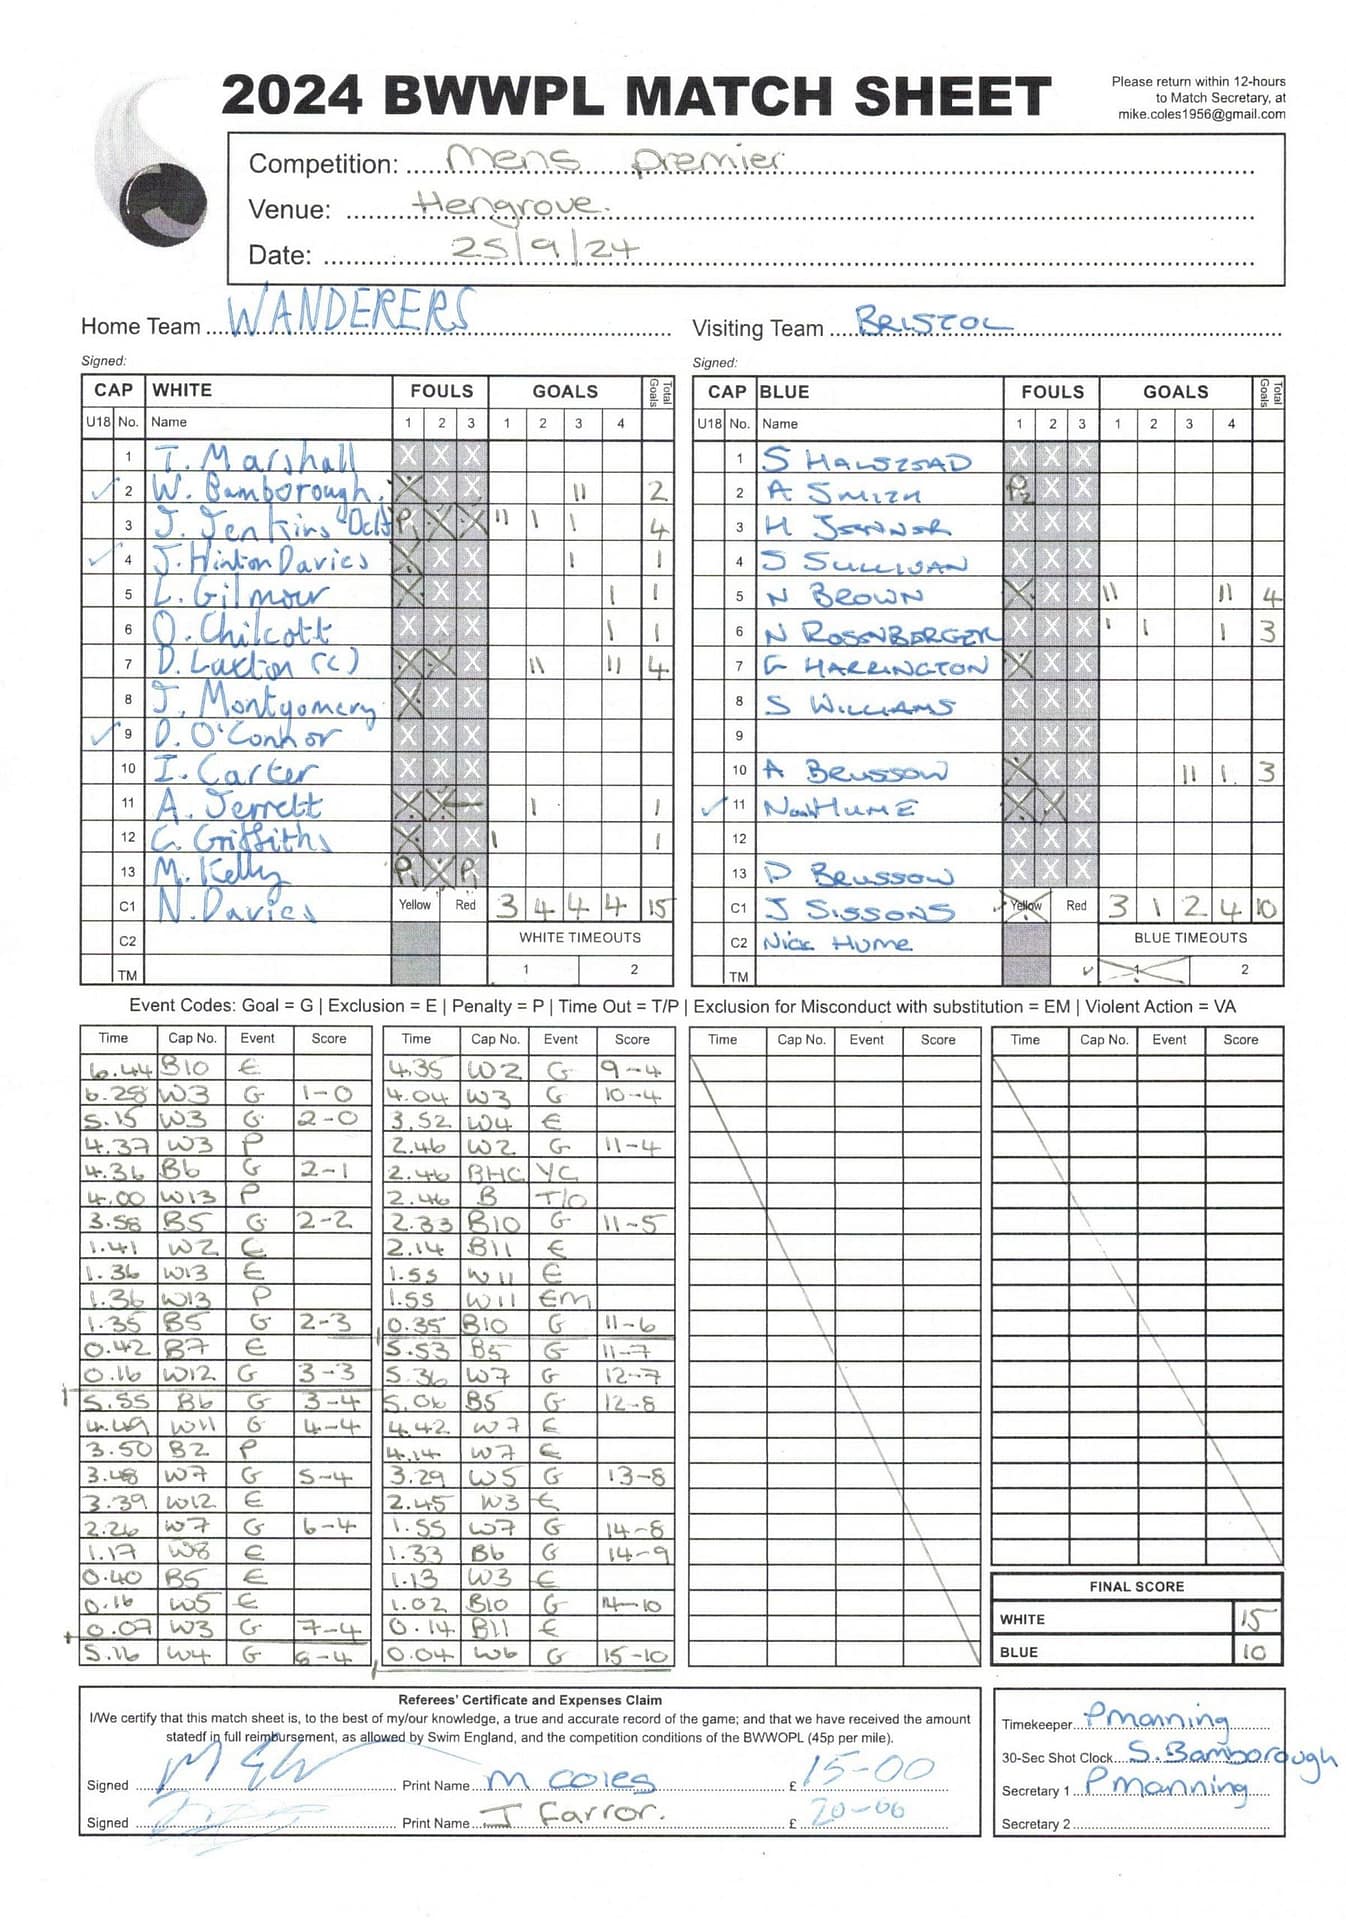 2024 BWWPL MATCH SHEET
Please return within 12-hours
to Match Secretary, at
mike.coles1956@gmail.com
Competition: Mens Premier
Venue: Hengrove.
Date: 25/9/24
Home Team WANDERERS
Visiting Team BRISTOL
Signed:
Signed:
CAP WHITE FOULS GOALS Total Goals
U18 No. Name 1 2 3 1 2 3 4
1 T. Marshall X X X
✓ 2 W. Bamborough. X X X || 2
3 J. Jenkins P X X || | | 4
✓ 4 J. Hinton Davies X X X | 1
5 L. Gilmour X X X | 1
6 O. Chilcott X X X | 1
7 D. Luxton (C) X X X || || 4
8 J. Montgomery X X X
✓ 9 D. O'Connor X X X
10 I. Carter X X X
11 A. Jerrett X X X | 1
12 C. Griffiths X X X | 1
13 M. Kelly P X P
C1 N. Davies Yellow Red 3 4 4 4 15
C2 WHITE TIMEOUTS
TM 1 2
CAP BLUE FOULS GOALS Total Goals
U18 No. Name 1 2 3 1 2 3 4
1 S HALSTEAD X X X
2 A SMITH P2 X X
3 H JENNER X X X
4 S SULLIVAN X X X
5 N BROWN X X X || || 4
6 N ROSENBERGER X X X | | | 3
7 G HARRINGTON X X X
8 S WILLIAMS X X X
9 X X X
10 A BRUSSOW X X X || | 3
✓ 11 HUME X X X
12 X X X
13 D BRUSSOW X X X
C1 J SISSONS Yellow Red 3 1 2 4 10
C2 Nick Hume BLUE TIMEOUTS
TM ✓ 1 2
Event Codes: Goal = G | Exclusion = E | Penalty = P | Time Out = T/P | Exclusion for Misconduct with substitution = EM | Violent Action = VA
Time Cap No. Event Score
6.44 B10 E
6.28 W3 G 1-0
5.15 W3 G 2-0
4.37 W3 P
4.36 B6 G 2-1
4.00 W13 P
3.58 B5 G 2-2
1.41 W2 E
1.36 W13 E
1.36 W13 P
1.35 B5 G 2-3
0.42 B7 E
0.16 W12 G 3-3
5.55 B6 G 3-4
4.49 W11 G 4-4
3.50 B2 P
3.48 W7 G 5-4
3.39 W12 E
2.26 W7 G 6-4
1.17 W8 E
0.40 B5 E
0.16 W5 E
0.07 W3 G 7-4
5.16 W4 G 8-4
Time Cap No. Event Score
4.35 W2 G 9-4
4.04 W3 G 10-4
3.52 W4 E
2.46 W2 G 11-4
2.46 BHC YC
2.46 B T/O
2.33 B10 G 11-5
2.14 B11 E
1.55 W11 E
1.55 W11 EM
0.35 B10 G 11-6
5.53 B5 G 11-7
5.36 W7 G 12-7
5.06 B5 G 12-8
4.42 W7 E
4.14 W7 E
3.29 W5 G 13-8
2.45 W3 E
1.55 W7 G 14-8
1.33 B6 G 14-9
1.13 W3 E
1.02 B10 G 14-10
0.14 B11 E
0.04 W6 G 15-10
Time Cap No. Event Score
Time Cap No. Event Score
FINAL SCORE
WHITE 15
BLUE 10
Referees' Certificate and Expenses Claim
I/We certify that this match sheet is, to the best of my/our knowledge, a true and accurate record of the game; and that we have received the amount
statedf in full reimbursement, as allowed by Swim England, and the competition conditions of the BWWOPL (45p per mile).
Signed Print Name M Coles £ 15-00
Signed Print Name J Farror. £ 20-00
Timekeeper P Manning
30-Sec Shot Clock S. Bamborough
Secretary 1 P Manning
Secretary 2